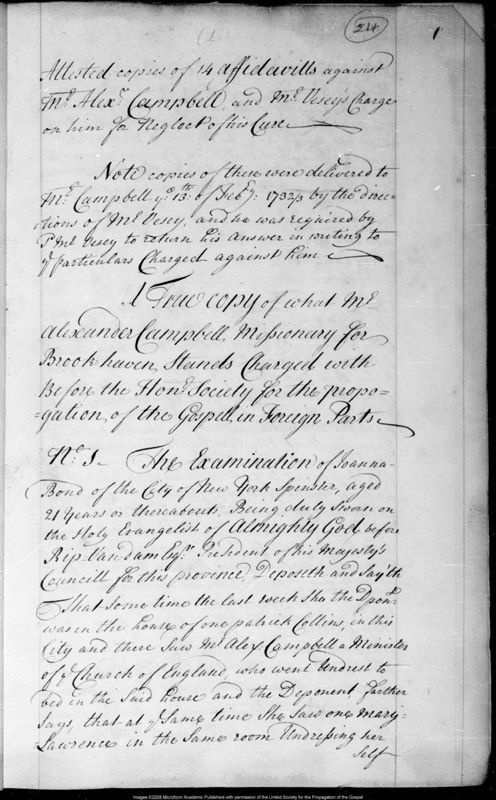 (1.
24
1
Attested copies of 14 affidavitts against
Mr. Alexr. Campbell, and Mr. Vesey's Charge
on him for Neglect of his Cure
Note copies of these were delivered to
Mr. Campbell ye. 13th. of Feby: 1732/3 by the direc-
tions of Mr. Vesey, and he was required by
sd. Mr. Vesey to return his answer in writing to
ye particulars Charged against him
A True copy of what Mr.
Alexander Campbell, Missionary for
Brookhaven, Stands Charged with
Before the Hond. Society for the propo-
=gation, of the Gospel, in Foreign Parts
No. 1. The Examination of Joanna-
Bond of the City of New York Spinster, aged
21 Years or thereabouts, Being duly Sworn on
the Holy Evangelist of Almighty God, before
Rip Van dam Esqr. President of his Majesty's
Councill for this province, Deposeth and Say'th
That some time the last week She the Dpont.
was in the house of one patrick Collins, in this
City and there Saw Mr. Alex. Campbell a Minister
of ye Church of England who went Undrest to
bed in the Said house and the Deponent farther
Says, that at ye Same time She Saw one Mary-
Lawrence in the Same room Undressing her
Self
Images ©2008 Microform Academic Publishers with permission of the United Society for the Propagation of the Gospel